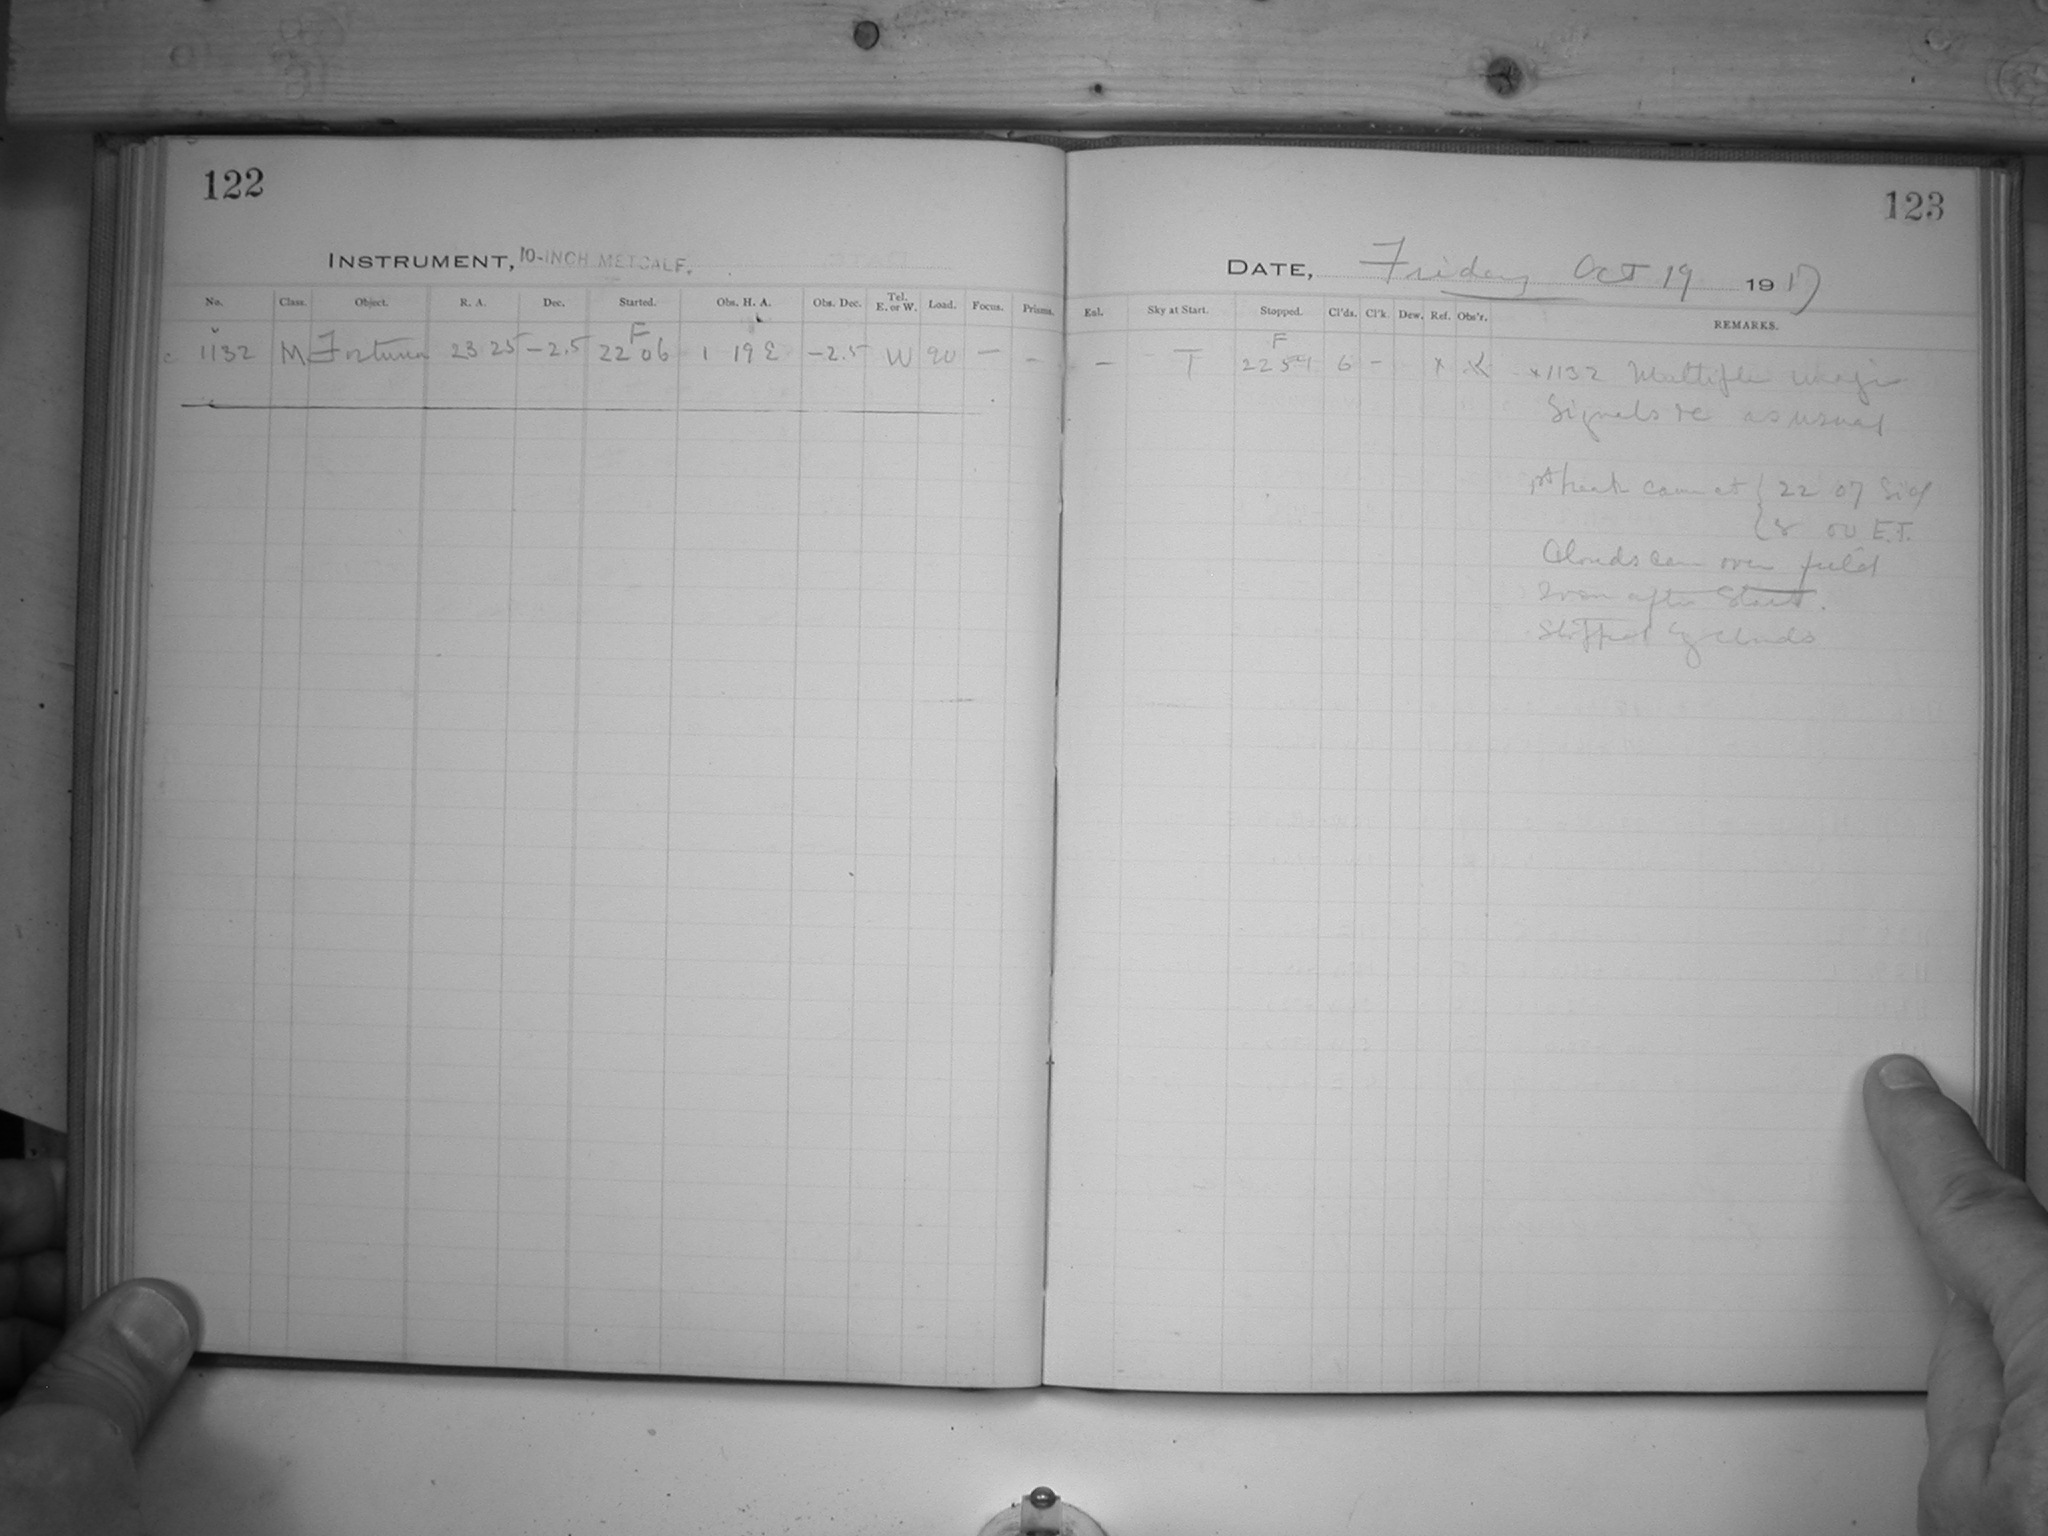 122
INSTRUMENT, 10-INCH METCALF.
No. Class. Object. R. A. Dec. Started. Obs. H. A. Obs. Dec. Tel. E. or W. Load. Focus. Prisms.
F
1132 M Fortuna 23 25 -2.5 22 06 1 19 E -2.5 W 90 - -
123
DATE, Friday Oct 19 1917
Eul. Sky at Start. Stopped. Cl'ds. Cl'k. Dew. Ref. Obs'r. REMARKS.
F
- T 22 54 6 - x
x 1132 Multiple
Signals as usual
at { 22 07 Sid
{ 8 00 E.T.
Clouds over field
after Start.
by clouds